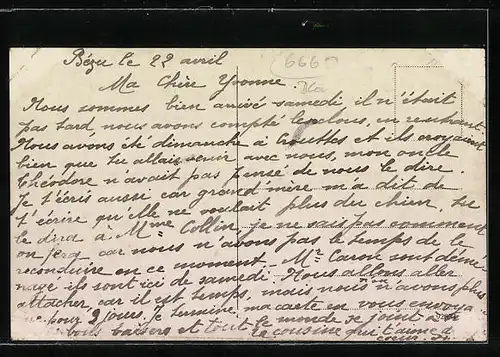 Bézu le 22 avril
666
Ma Chère Yvonne.
Nous sommes bien arrivé samedi il n'était
pas tard, nous avons compté les clous, en rentrant
Nous avons été dimanche à Crouttes et ils croyaient
bien que tu allais venir avec nous, mon oncle
Théodore n'avait pas pensé de nous le dire.
Je t'écris aussi car grand mère m'a dit de
t'écrire qu'elle ne voulait plus du chien, tu
le dira à Mme Collin, je ne sais pas comment
on fera car nous n'avons pas le temps de le
reconduire en ce moment. Mr Caron sont démé-
nagé ils sont ici de samedi. Nous allons aller
attacher, car il est temps, mais nous n'avons plus
que pour 2 jours. Je termine, ma carte en vous envoya
bons baisers et tout le monde se joint à
ta cousine qui t'aime